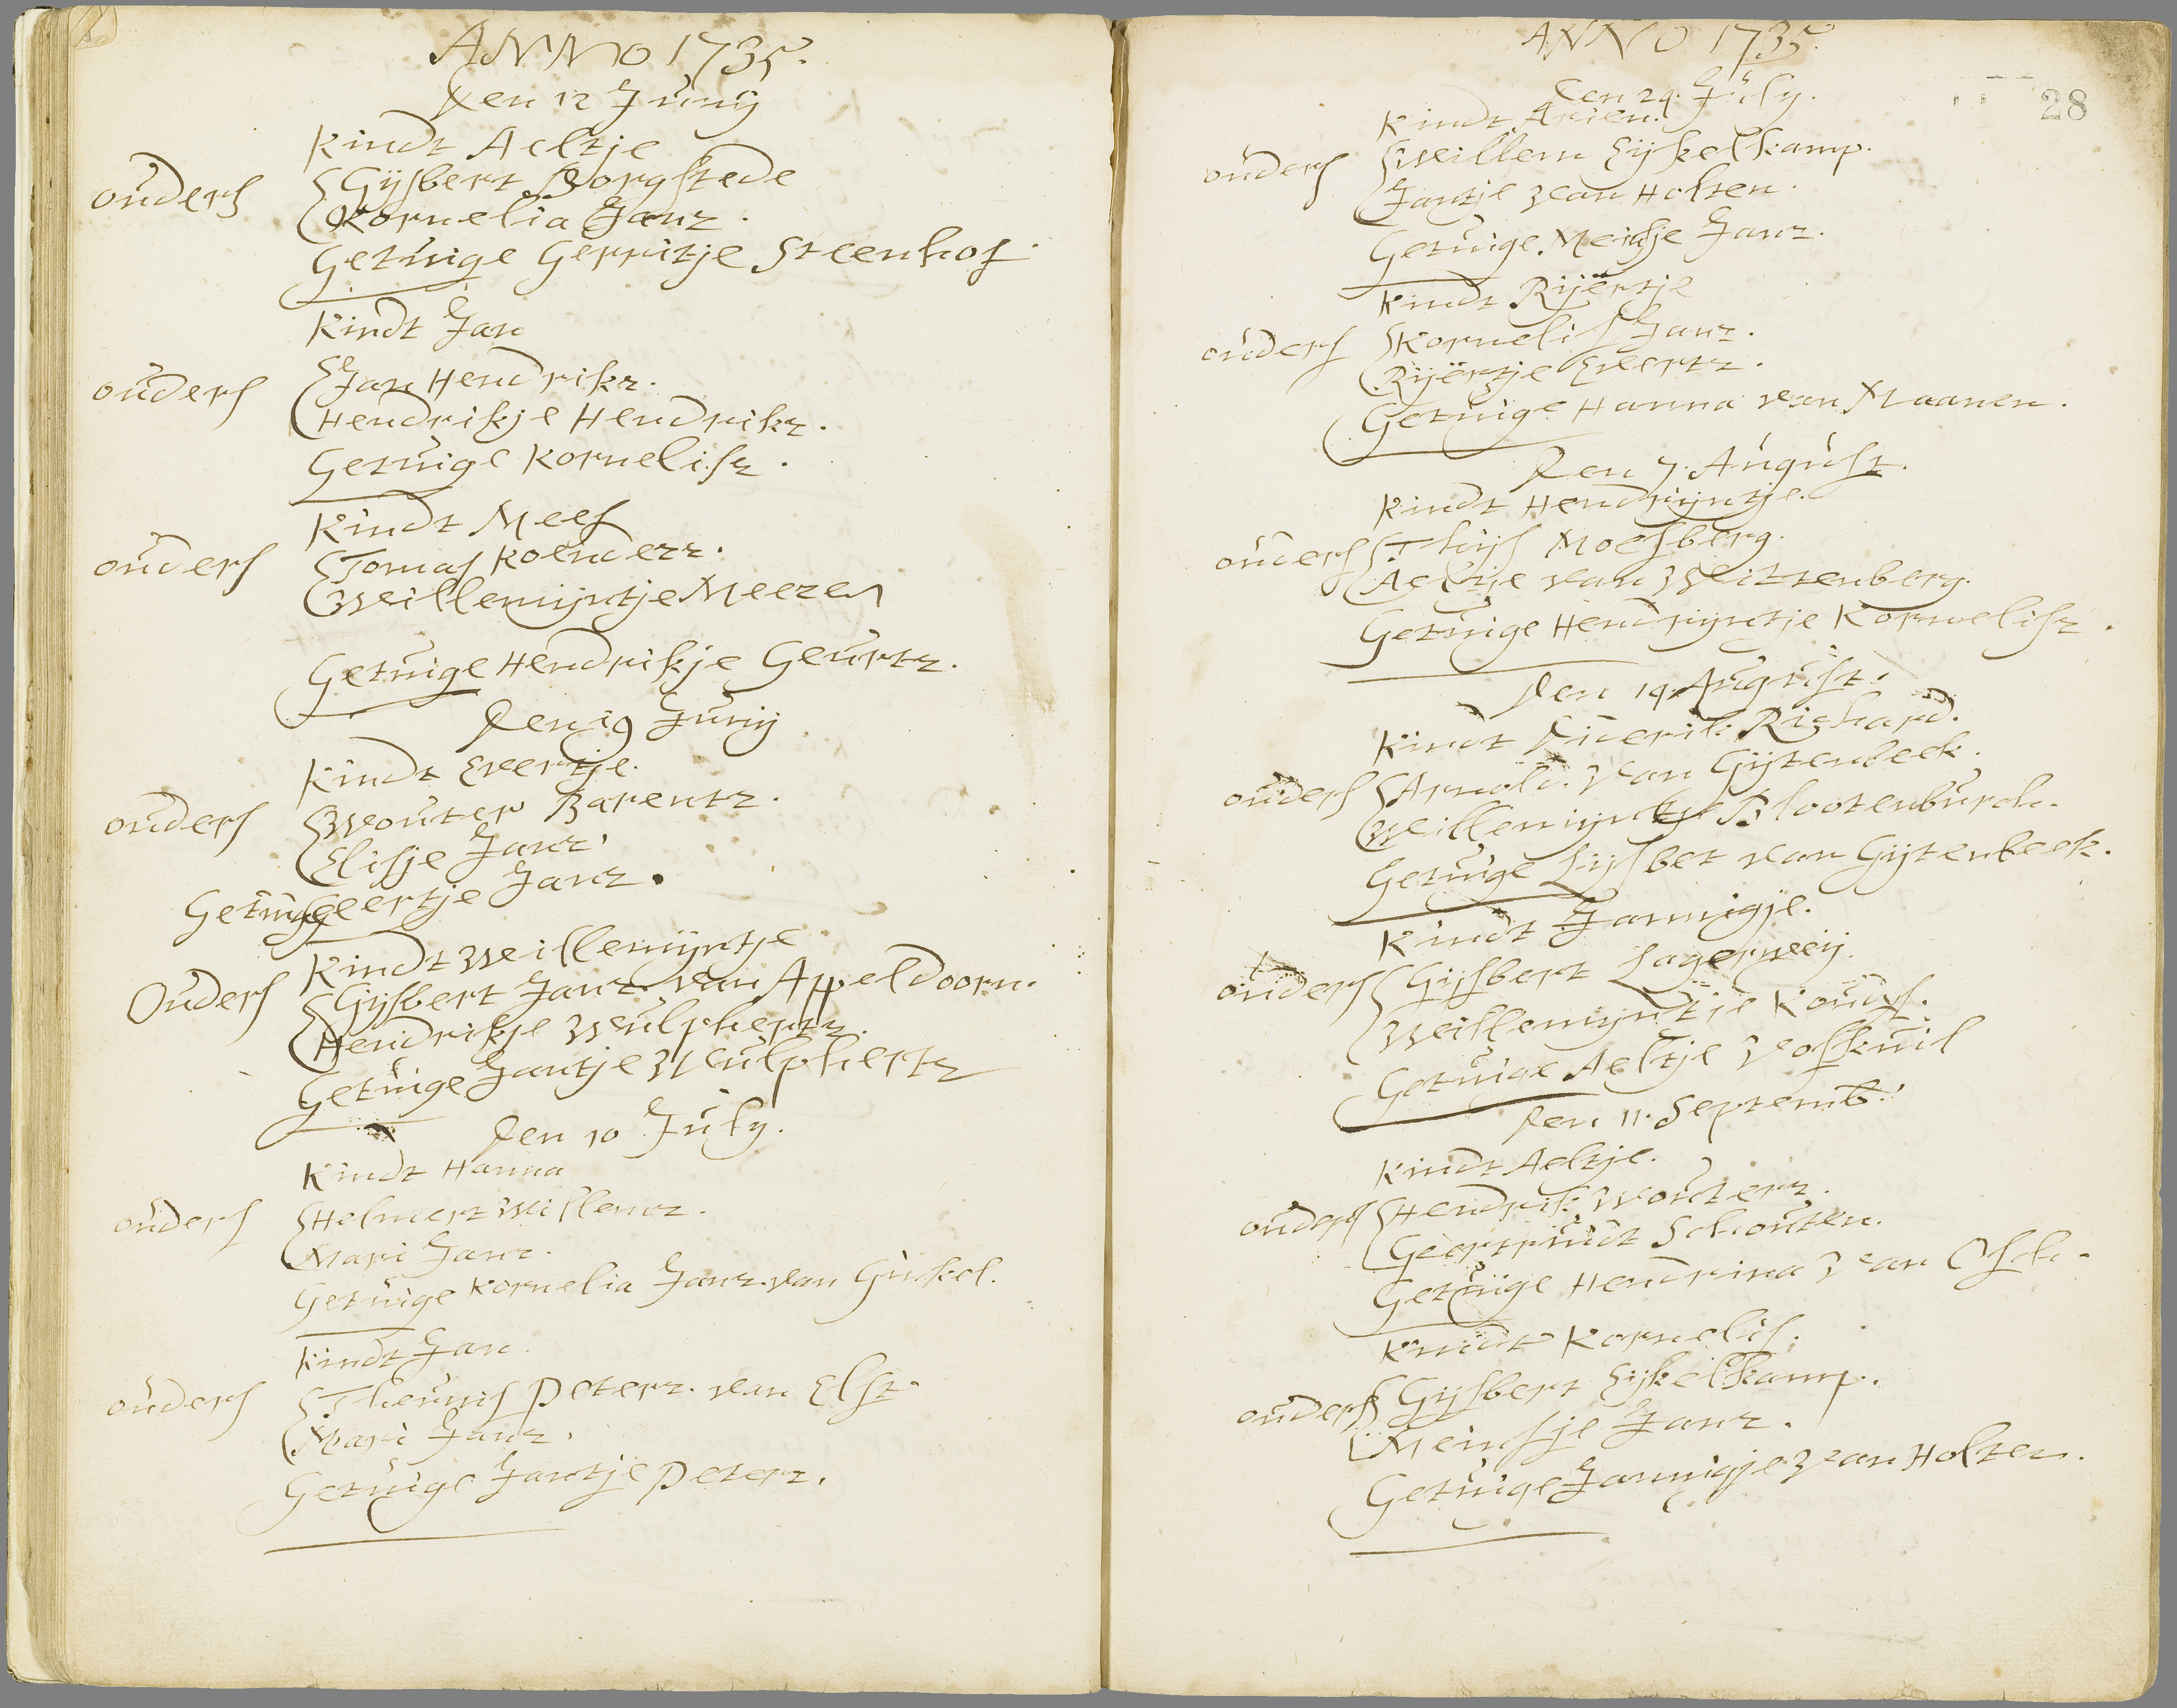 ANNO 1735.
Den 12 Junij
Kindt Aeltje
ouders Gijsbert Borgstede
Kornelia Janz.
Getuige Gerritje Steenhof.
Kindt Jan
ouders Jan Hendrikz.
Hendrikje Hendrikz.
Getuige Kornelisz.
Kindt Mees
ouders Tomas Koenderz.
Willemijntje Meezen
Getuige Hendrikje Geurtz.
Den 19 Junij
Kindt Evertje.
ouders Wouter Barentz.
Elisje Janz.
Getuige Geertje Janz.
Kindt Willemijntje
Ouders Gijsbert Janz van Appeldoorn.
Hendrikje Wulphertz.
Getuige Jantje Wulphertz
Den 10 July.
Kindt Hanna
ouders Helmert Willemz.
Mari Janz.
Getuige Kornelia Janz. van Ginkel.
Kindt Jan
ouders Theunis Peterz. van Elst.
Mari Janz.
Getuige Jantje Peterz.
ANNO 1735.
28
Den 24. July.
Kindt Arien.
ouders Willem Eijkelkamp.
Jantje van Holten.
Getuige. Meinsje Janz.
Kindt Rijertje
ouders Kornelis Janz.
Rijertje Evertz.
Getuige Hanna van Maanen.
Den 7. August.
Kindt Hendrijntje.
ouders Thijs Moesberg.
Aeltje van Wittenberg.
Getuige Hendrijntje Kornelisz.
Den 14. August.
Kindt Diderik Rizhard.
ouders Arnold. van Gijtenbeek.
Willemijntje Blootenburch.
Getuige Lijsbet van Gijtenbeek.
Kindt Jannigje.
ouders Gijsbert Lagerweij.
Willemijntje
Getuige Aeltje Voskuil
Den 11. Septemb.
Kindt Aeltje.
ouders Hendrik Wouterz.
Geertruidt Schouten.
Getuige Hendrina van Osch.
Kindt Kornelis.
ouders Gijsbert Eijkelkamp.
Meinsje Janz.
Getuige Jannigje van Holten.